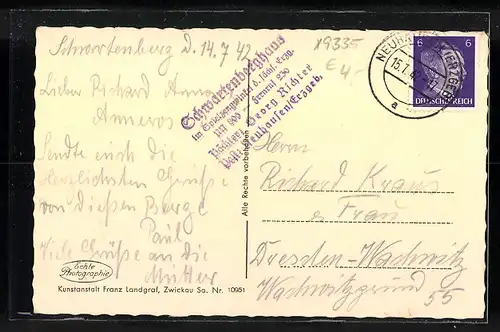 Schwartenberg d. 14.7.42
Lieber Richard Anna
Anneros
Sendte euch die
Herzlichsten Grüße
von diesen Berge
Paul
Viele Grüße an die
Mutter
Echte
Photographie
Kunstanstalt Franz Landgraf, Zwickau Sa. Nr. 10951
Schwartenberghaus
im Spielzeugwinkel d. sächs. Erzg.
Georg Richter
Post Neuhausen/Erzgeb.
Alle Rechte vorbehalten
x9335
€ 4,-
NEUHAUSEN (ERZGEB)
15.7.42
a
6 6
DEUTSCHES REICH
Herrn
Richard Kraus
u Frau
Dresden-Wachwitz
Wachwitzgrund
55